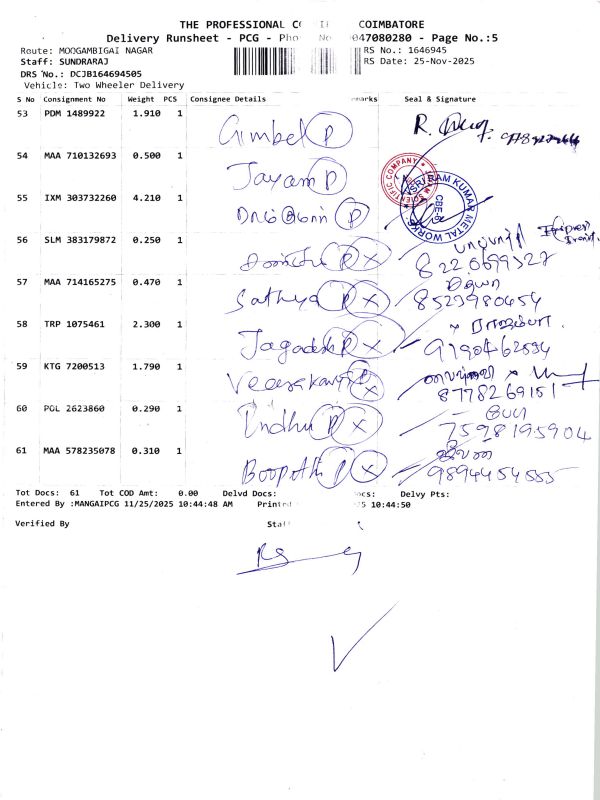 THE PROFESSIONAL CO COIMBATORE
Delivery Runsheet - PCG - Pho No 047080280 - Page No.:5
Route: MOOGAMBIGAI NAGAR RS No.: 1646945
Staff: SUNDRARAJ RS Date: 25-Nov-2025
DRS No.: DCJB164694505
Vehicle: Two Wheeler Delivery
S No Consignment No Weight PCS Consignee Details marks Seal & Signature
53 PDM 1489922 1.910 1 Gimbel P
54 MAA 710132693 0.500 1 Jayam P
55 IXM 303732260 4.210 1 P
SRI RAM KUMAR METAL WORKS
CBE
56 SLM 383179872 0.250 1 P X
57 MAA 714165275 0.470 1 Sathya P X 8523980454
58 TRP 1075461 2.300 1 Jagadesh P X
59 KTG 7200513 1.790 1 X 8778269151
60 POL 2623860 0.290 1 Indhu P X 7598195904
61 MAA 578235078 0.310 1 Boopathi P X 9894454555
Tot Docs: 61 Tot COD Amt: 0.00 Delvd Docs: cs: Delvy Pts:
Entered By :MANGAIPCG 11/25/2025 10:44:48 AM Printed 25 10:44:50
Verified By Staf